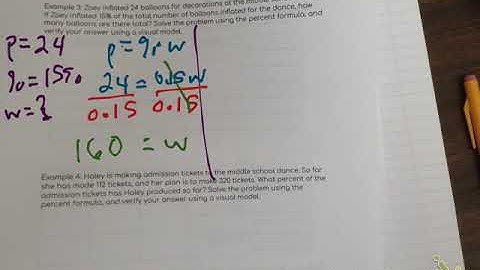 Example 3: Zoey inflated 24 balloons for decorations at the middle school
If Zoey inflated 15% of the total number of balloons inflated for the dance, how
many balloons are there total? Solve the problem using the percent formula, and
verify your answer using a visual model.
p=24
%=15%
w=?
p=%·w
24=0.15w
0.15 0.15
160 = w
Example 4: Haley is making admission tickets to the middle school dance. So far
she has made 112 tickets, and her plan is to make 320 tickets. What percent of the
admission tickets has Haley produced so far? Solve the problem using the
percent formula, and verify your answer using a visual model.